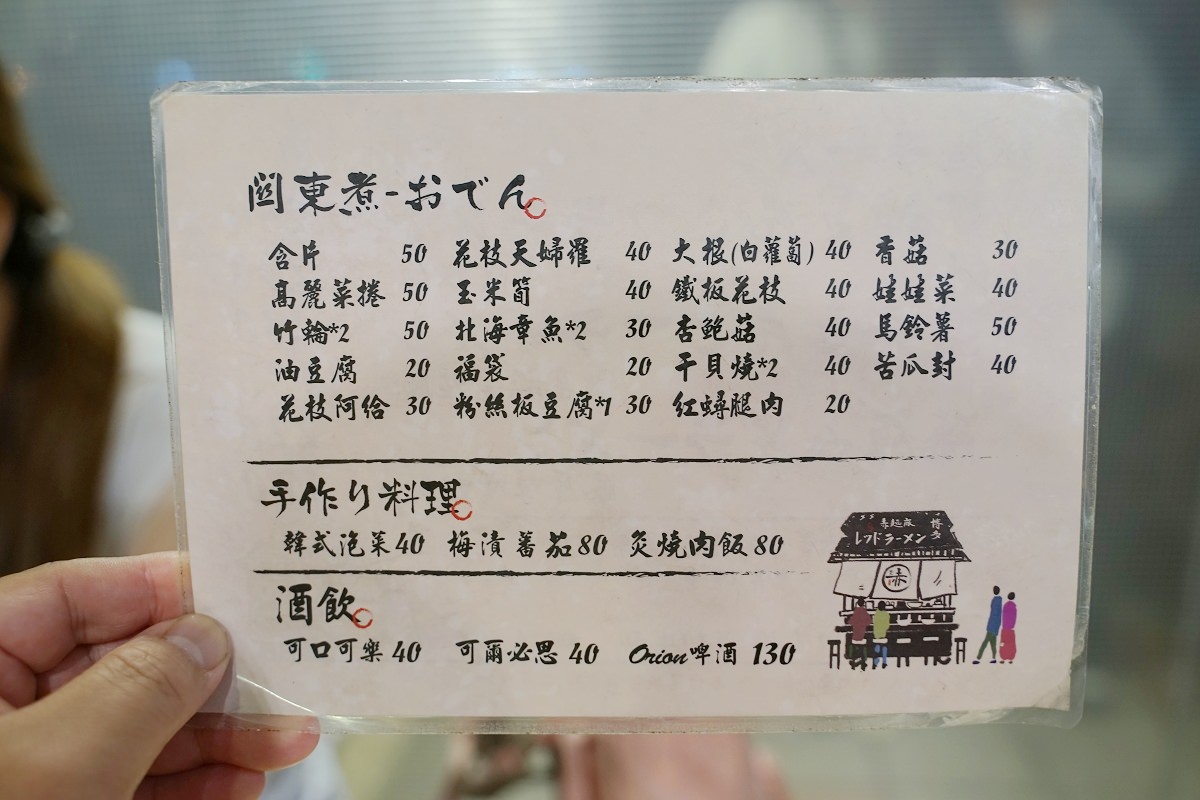 関東煮-おでん
含片 50 花枝天婦羅 40 大根(白蘿蔔) 40 香菇 30
高麗菜捲 50 玉米筍 40 鐵板花枝 40 娃娃菜 40
竹輪*2 50 北海章魚*2 30 杏鮑菇 40 馬鈴薯 50
油豆腐 20 福袋 20 干貝燒*2 40 苦瓜封 40
花枝阿給 30 粉絲板豆腐*1 30 紅蟳腿肉 20
手作り料理
韓式泡菜40 梅漬蕃茄80 炙燒肉飯80
酒飲
可口可樂 40 可爾必思 40 Orion啤酒 130
赤麺廠 博多
レッドラーメン
赤